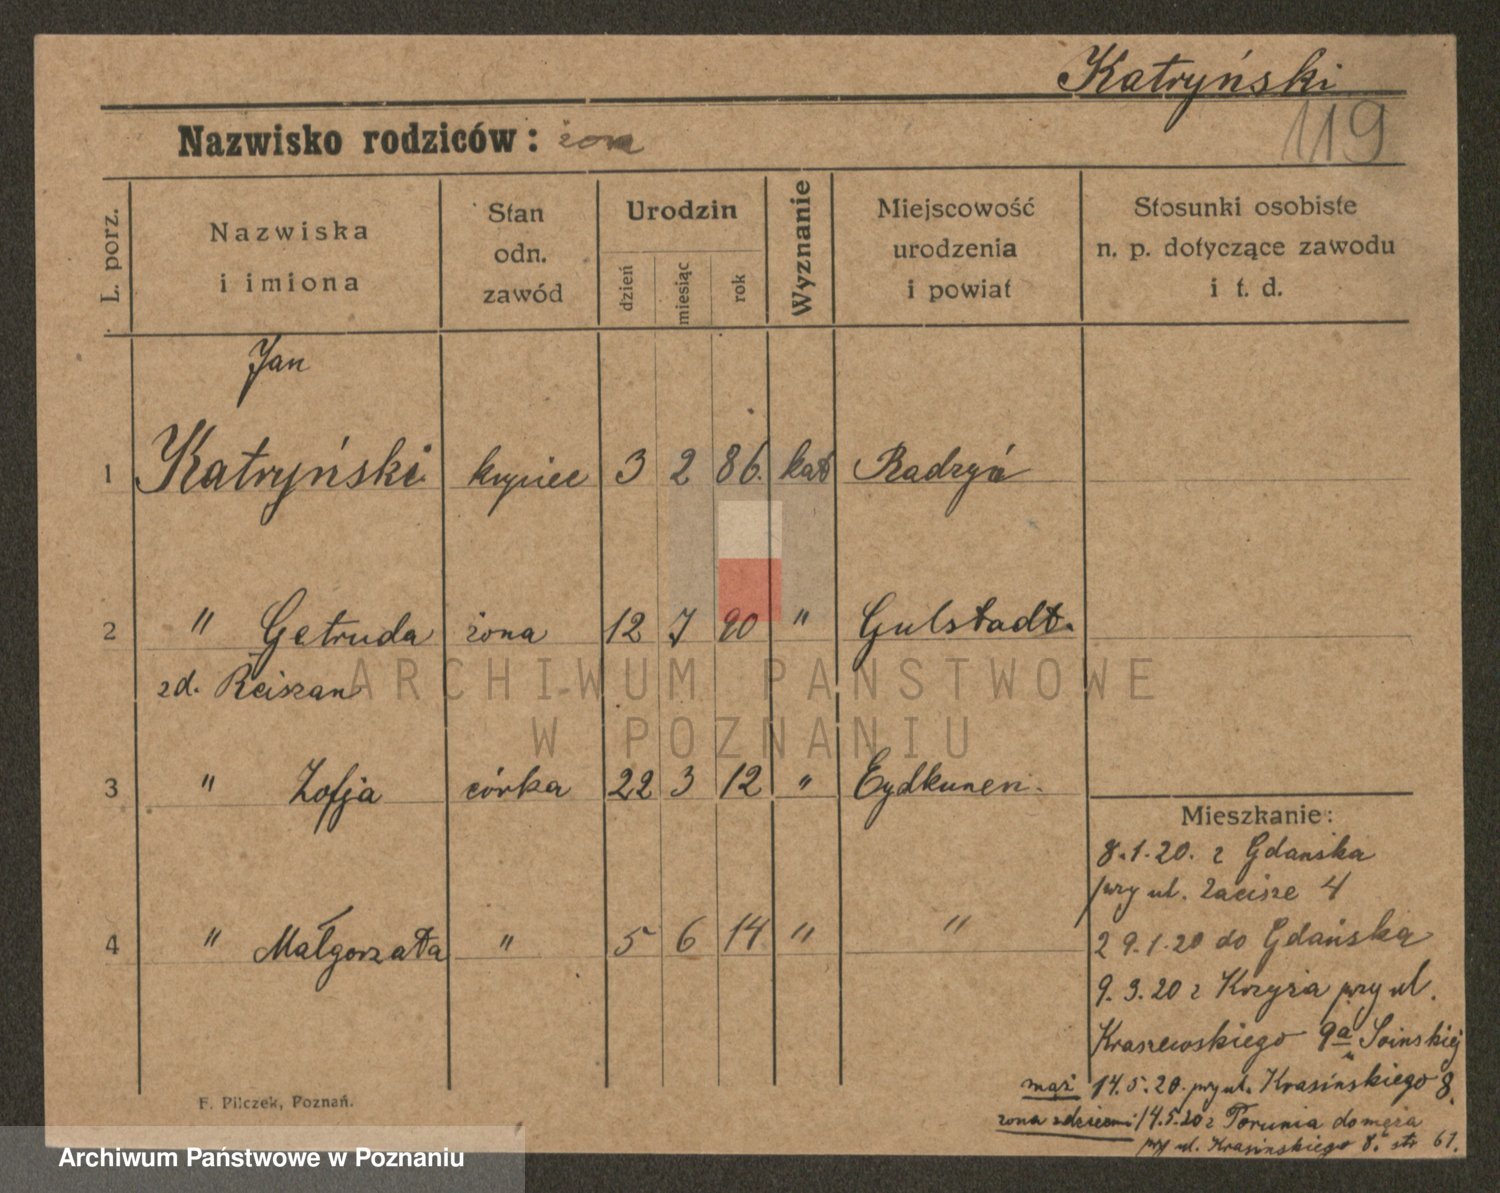 Katryński
119
Nazwisko rodziców: żona
L. porz.
Nazwiska
i imiona
Stan
odn.
zawód
Urodzin
dzień
miesiąc
rok
Wyznanie
Miejscowość
urodzenia
i powiat
Stosunki osobiste
n. p. dotyczące zawodu
i t. d.
Jan
1 Katryński kupiec 3 2 86. kat Radzyń
2 " Getruda żona 12 7 90 " Gulstadt.
zd. Reiszan
3 " Zofja córka 22 3 12 " Eydkunen.
4 " Małgorzata " 5 6 14 " "
Mieszkanie:
8.1.20. z Gdańska
przy ul. Zacisze 4
29.1.20 do Gdańska
9.3.20 z Krzyża przy ul.
Kraszewskiego 9a
mąż 14.5.20. przy ul. Krasińskiego 8.
żona z dziećmi 14.5.20 z Torunia do męża
przy ul. Krasińskiego 8. str 61.
F. Pilczek, Poznań.
ARCHIWUM PAŃSTWOWE
W POZNANIU
Archiwum Państwowe w Poznaniu